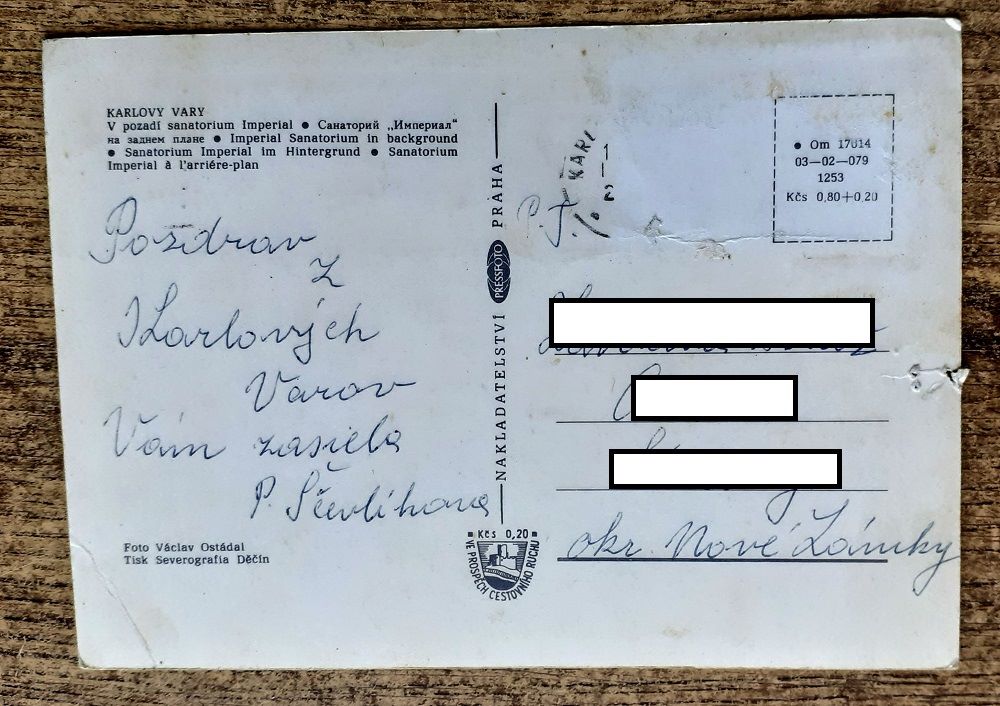 KARLOVY VARY
V pozadí sanatorium Imperial ● Санаторий „Империал"
на заднем плане ● Imperial Sanatorium in background
● Sanatorium Imperial im Hintergrund ● Sanatorium
Imperial à l'arriére-plan
Pozdrav
z
Karlových
Varov
Vám zasiela
P.
Foto Václav Ostádal
Tisk Severografia Děčín
NAKLADATELSTVÍ PRESSFOTO PRAHA
Kčs 0,20
VE PROSPĚCH CESTOVNÍHO RUCHU
P. T.
KARL
● Om 17014
03—02—079
1253
Kčs 0,80+0,20
okr. Nové Zámky